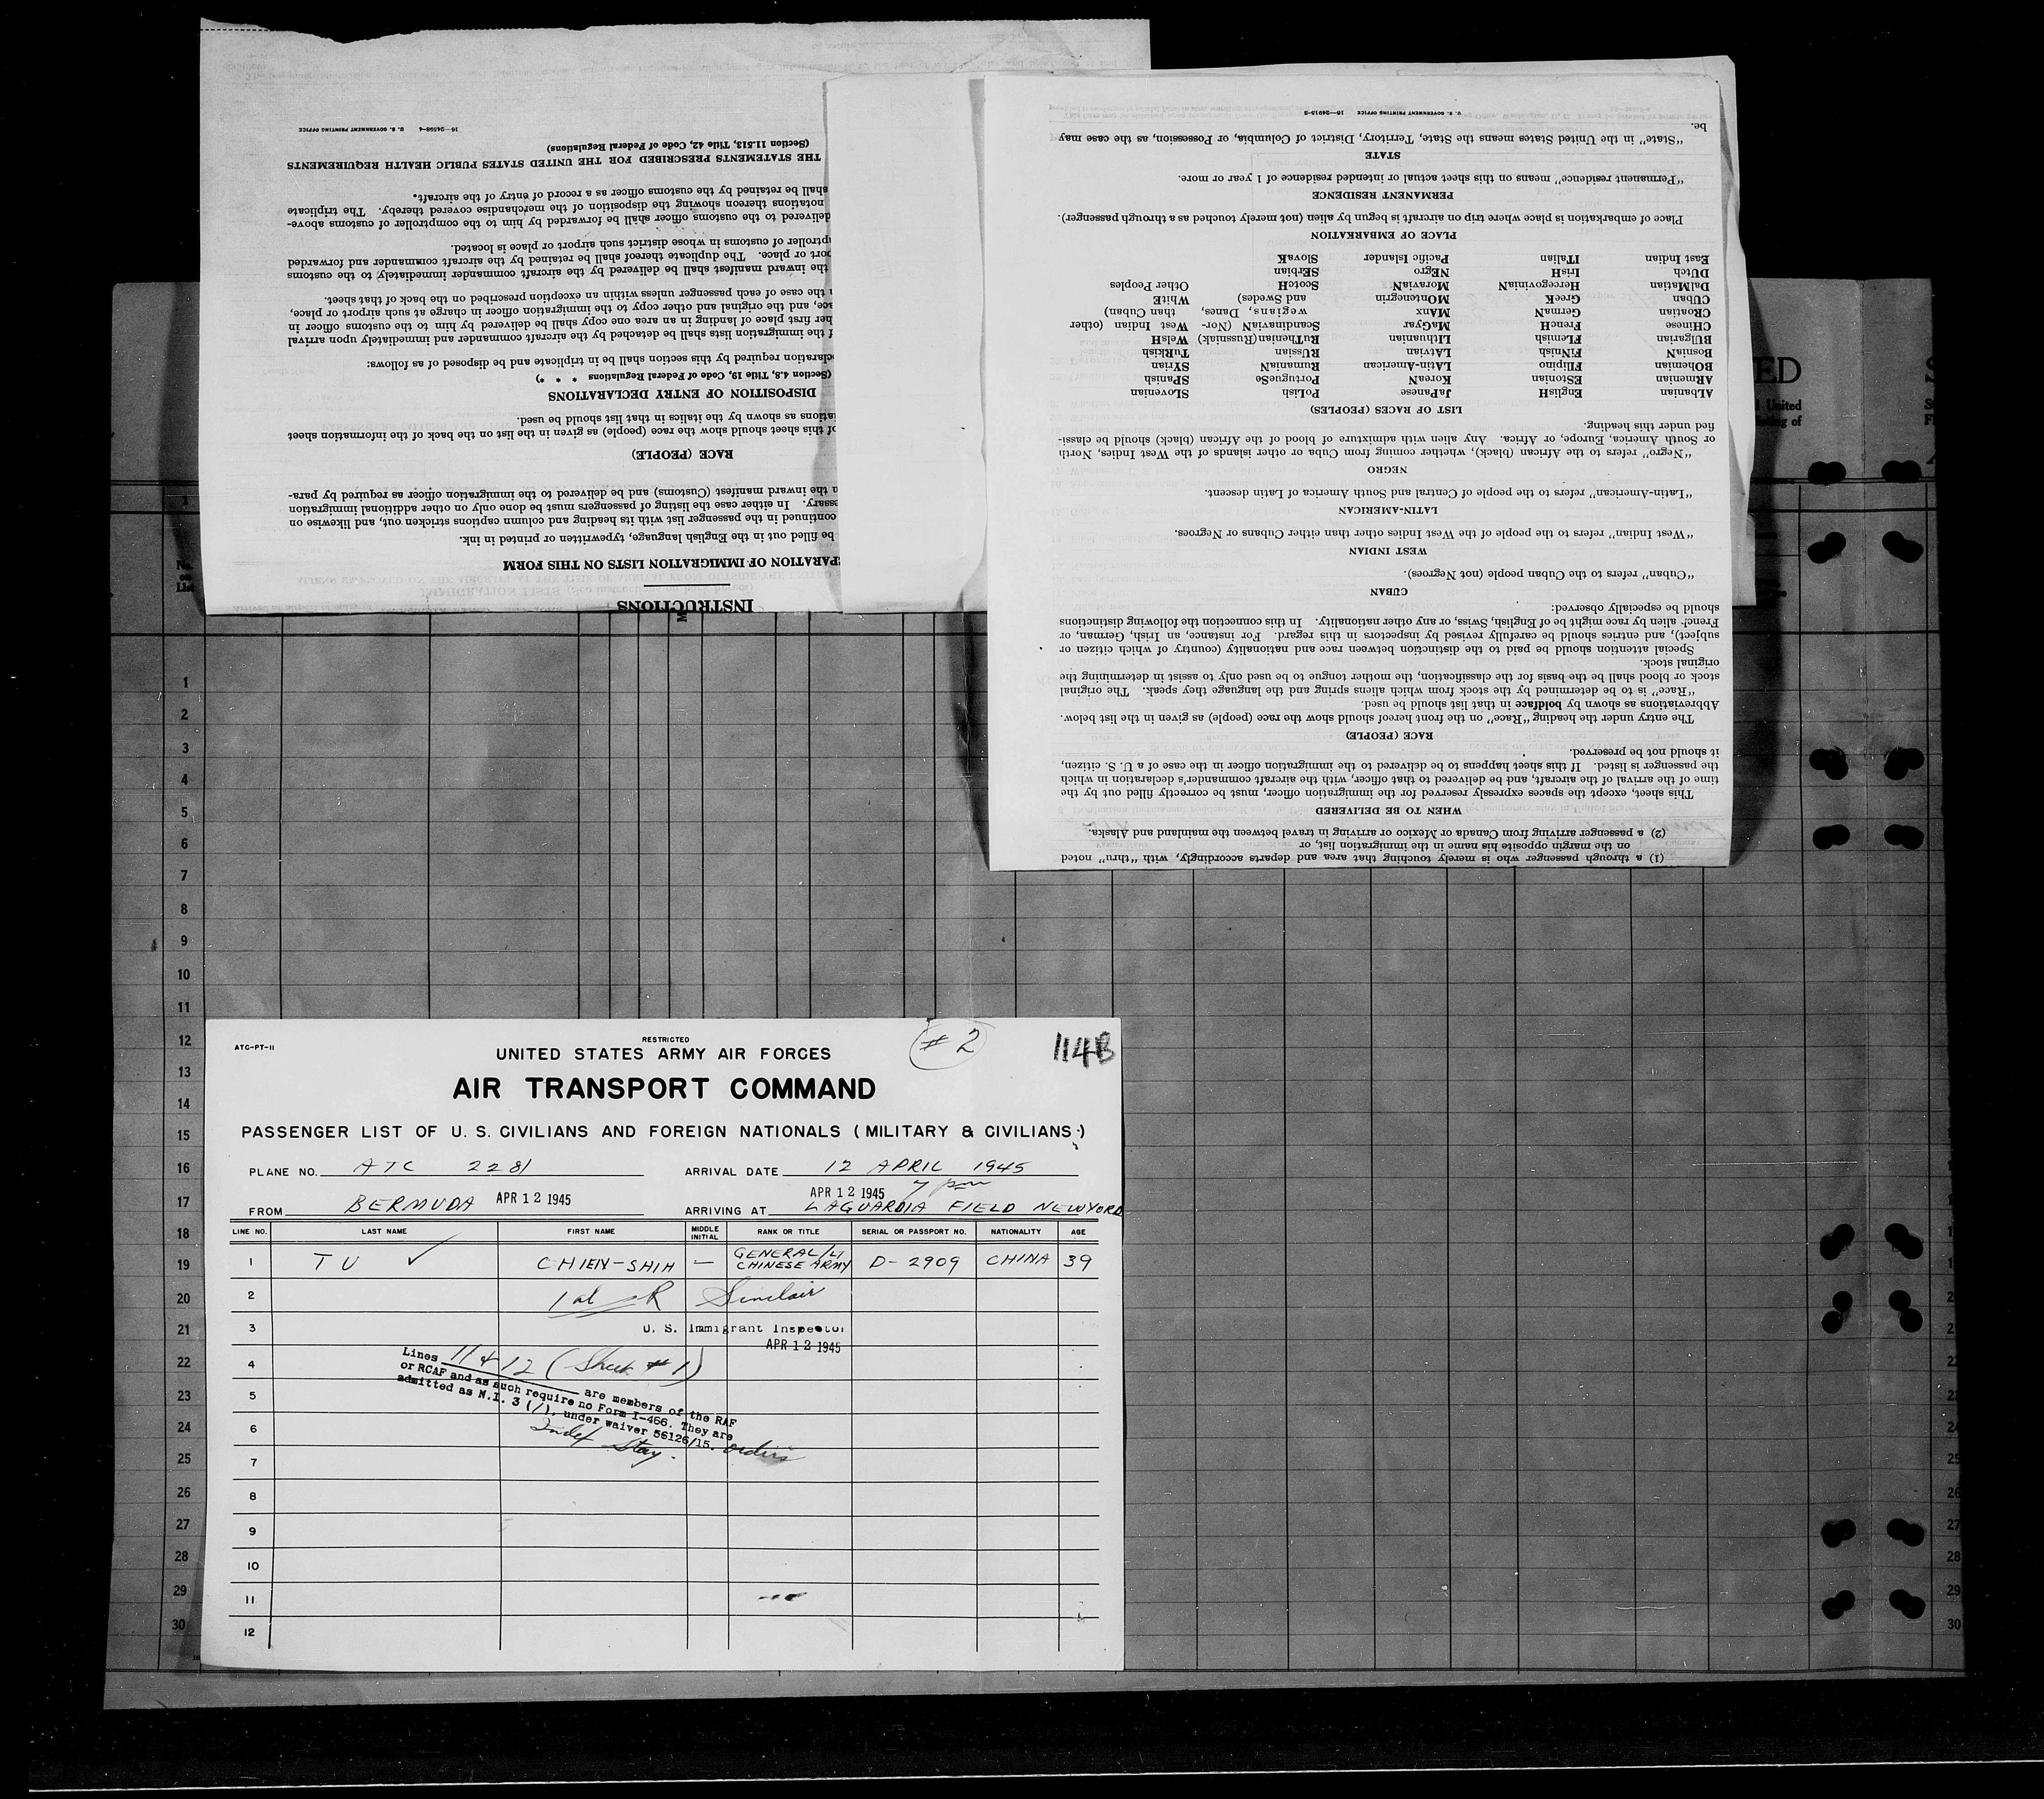 ATC-PT-11
RESTRICTED
UNITED STATES ARMY AIR FORCES
# 2
114B
AIR TRANSPORT COMMAND
PASSENGER LIST OF U. S. CIVILIANS AND FOREIGN NATIONALS ( MILITARY & CIVILIANS )
PLANE NO. ATC 2281 ARRIVAL DATE 12 APRIL 1945
APR 12 1945 7 pm
FROM BERMUDA APR 12 1945 ARRIVING AT LAGUARDIA FIELD NEWYORK
LINE NO. LAST NAME FIRST NAME MIDDLE INITIAL RANK OR TITLE SERIAL OR PASSPORT NO. NATIONALITY AGE
1 TU ✓ CHIEN-SHIH — GENERAL/LT CHINESE ARMY D-2909 CHINA 39
2 1 al R Sinclair
3 U. S. Immigrant Inspector
APR 12 1945
4 Lines 11 & 12 (Sheet #1) are members of the RAF
or RCAF and as such require no Form I-466. They are
5 admitted as N.I. 3 (1), under waiver 56126/15.
6 Indef Stay. orders
7
8
9
10
11
12
INSTRUCTIONS
PARATION OF IMMIGRATION LISTS ON THIS FORM
be filled out in the English language, typewritten or printed in ink.
continued in the passenger list with its heading and column captions stricken out, and likewise on
ssary. In either case the listing of passengers must be done only on other additional immigration
n the inward manifest (Customs) and be delivered to the immigration officer as required by para-
RACE (PEOPLE)
of this sheet should show the race (people) as given in the list on the back of the information sheet
iations as shown by the italics in that list should be used.
DISPOSITION OF ENTRY DECLARATIONS
(Section 4.8, Title 19, Code of Federal Regulations * * *)
claration required by this section shall be in triplicate and be disposed of as follows:
f the immigration lists shall be detached by the aircraft commander and immediately upon arrival
her first place of landing in an area one copy shall be delivered by him to the customs officer in
ace, and the original and other copy to the immigration officer in charge at such airport or place,
n the case of each passenger unless within an exception prescribed on the back of that sheet.
the inward manifest shall be delivered by the aircraft commander immediately to the customs
port or place. The duplicate thereof shall be retained by the aircraft commander and forwarded
ptroller of customs in whose district such airport or place is located.
delivered to the customs officer shall be forwarded by him to the comptroller of customs above-
notations thereon showing the disposition of the merchandise covered thereby. The triplicate
shall be retained by the customs officer as a record of entry of the aircraft.
THE STATEMENTS PRESCRIBED FOR THE UNITED STATES PUBLIC HEALTH REQUIREMENTS
(Section 11.513, Title 42, Code of Federal Regulations)
16—24598-4 U. S. GOVERNMENT PRINTING OFFICE
(1) a through passenger who is merely touching that area and departs accordingly, with "thru" noted
on the margin opposite his name in the immigration list, or
(2) a passenger arriving from Canada or Mexico or arriving in travel between the mainland and Alaska.
WHEN TO BE DELIVERED
This sheet, except the spaces expressly reserved for the immigration officer, must be correctly filled out by the
time of the arrival of the aircraft, and be delivered to that officer, with the aircraft commander's declaration in which
the passenger is listed. If this sheet happens to be delivered to the immigration officer in the case of a U. S. citizen,
it should not be preserved.
RACE (PEOPLE)
The entry under the heading "Race" on the front hereof should show the race (people) as given in the list below.
Abbreviations as shown by boldface in that list should be used.
"Race" is to be determined by the stock from which aliens spring and the language they speak. The original
stock or blood shall be the basis for the classification, the mother tongue to be used only to assist in determining the
original stock.
Special attention should be paid to the distinction between race and nationality (country of which citizen or
subject), and entries should be carefully revised by inspectors in this regard. For instance, an Irish, German, or
French alien by race might be of English, Swiss, or any other nationality. In this connection the following distinctions
should be especially observed:
CUBAN
"Cuban" refers to the Cuban people (not Negroes).
WEST INDIAN
"West Indian" refers to the people of the West Indies other than either Cubans or Negroes.
LATIN-AMERICAN
"Latin-American" refers to the people of Central and South America of Latin descent.
NEGRO
"Negro" refers to the African (black), whether coming from Cuba or other islands of the West Indies, North
or South America, Europe, or Africa. Any alien with admixture of blood of the African (black) should be classi-
fied under this heading.
LIST OF RACES (PEOPLES)
ALbanian EngliSH JaPanese PoLish SLOvenian
ARmenian EStonian KoreaN PortugueSe SPanish
BOhemian FIlipino LAtin-American RumaniaN SYrian
BosniaN FiNish LAtvian RUssian TuRKish
BUlgarian FLemish LIthuanian RuThenian (Russniak) WelsH
CHinese FrencH MaGyar ScandinaviaN (Nor- West Indian (other
CRoatian GermaN MAnx wegians, Danes, than Cuban)
CUban GreeK MOntenegrin and Swedes) WhitE
DalMatian HercegoviniaN MoraviaN ScotcH Other Peoples
DUtch IrisH NEgro SErbian
East Indian ITalian Pacific Islander SlovaK
PLACE OF EMBARKATION
Place of embarkation is place where trip on aircraft is begun by alien (not merely touched as a through passenger).
PERMANENT RESIDENCE
"Permanent residence" means on this sheet actual or intended residence of 1 year or more.
STATE
"State" in the United States means the State, Territory, District of Columbia, or Possession, as the case may
be.
U. S. GOVERNMENT PRINTING OFFICE 16—24915-2
ED
United
No.
on
List
1
2
3
4
5
6
7
8
9
10
11
12
13
14
15
16
17
18
19
20
21
22
23
24
25
26
27
28
29
30